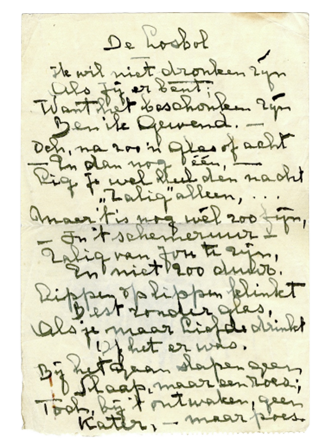 De Losbol
Ik wil niet dronken zijn
Als jij er bent:
Want het beschonken zijn
Ben ik gewend. —
Och, na zoo'n glas of acht
— En dan nog één, —
Lig je wel heel den nacht
"Zalig" alleen, ....
Maar 't is nog wél zoo fijn,
— In 't schemeruur —
Zalig van jou te zijn,
En niet zoo duur.
Lippen op lippen klinkt
Best zonder glas,
Als je maar liefde drinkt
Of het er was.
Bij het gaan slapen geen
Slaap, maar een roes;
Toch, bij 't ontwaken, geen
Kater, — maar poes.